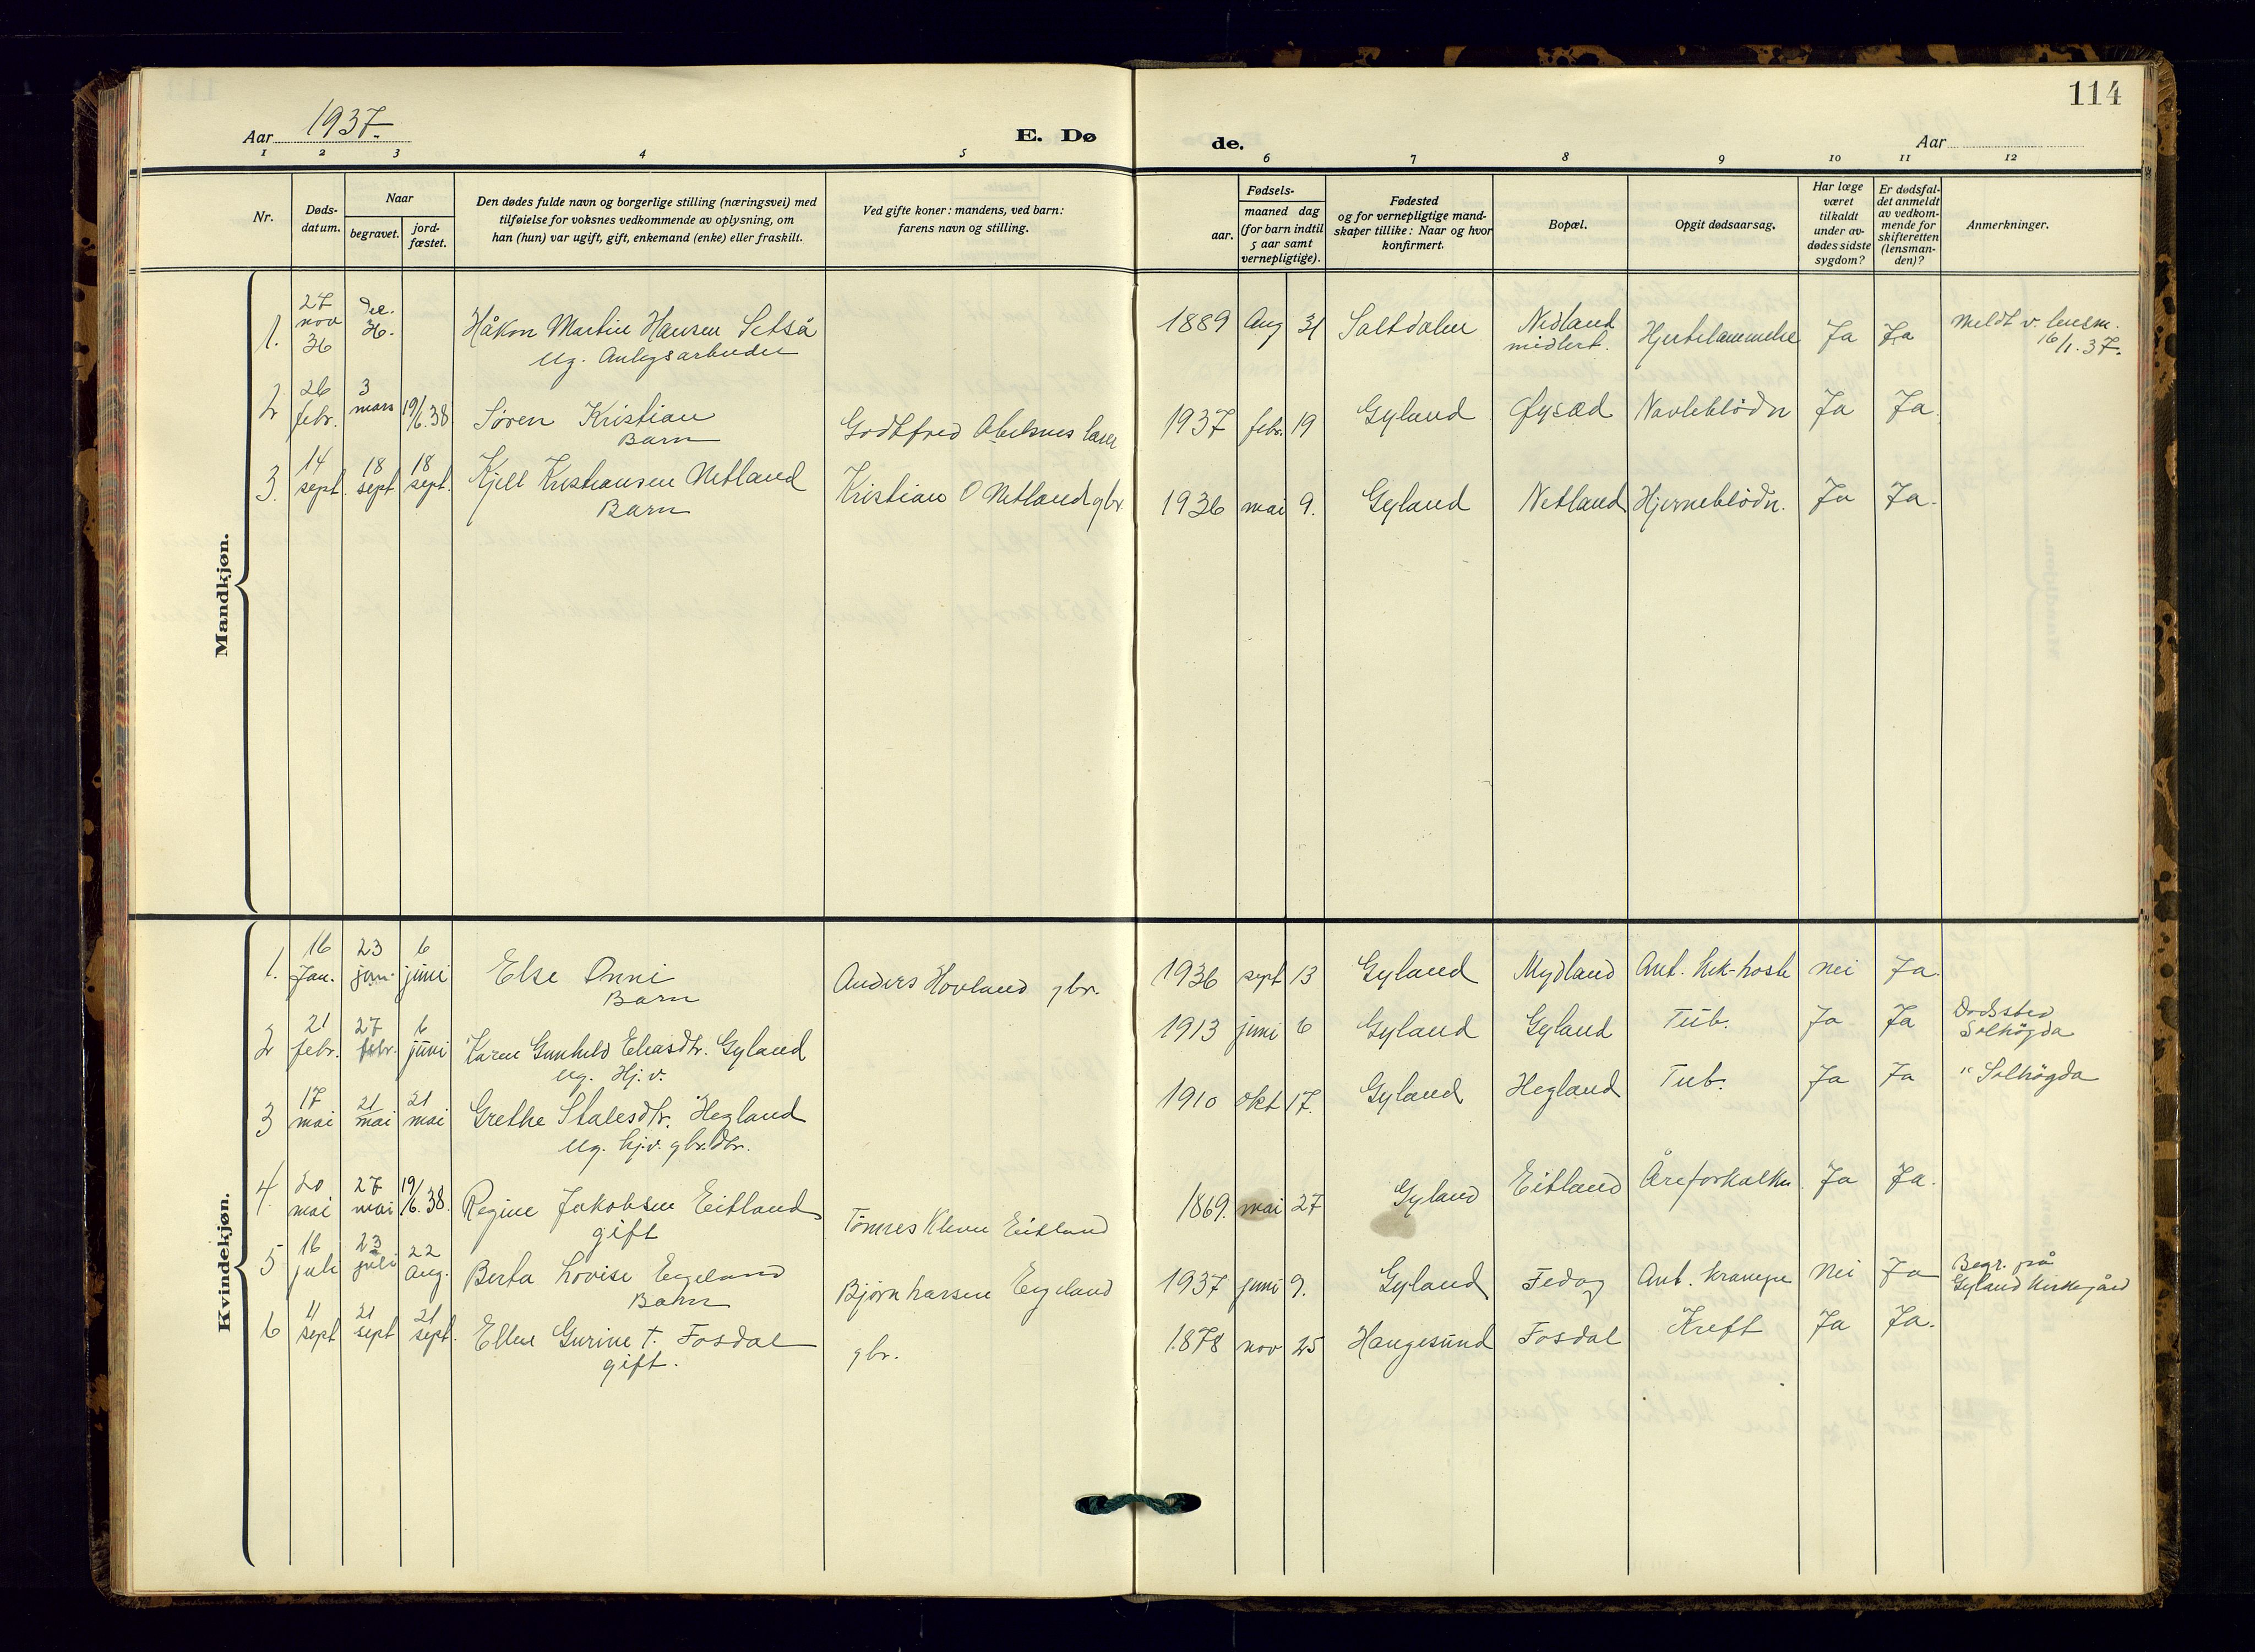 114
Aar 1937.
E. Dø
de.
Aar
1 2 3 4 5 6 7 8 9 10 11 12
Nr.
Døds-
datum.
Naar
begravet.
jord-
fæstet.
Den dødes fulde navn og borgerlige stilling (næringsvei) med
tilføielse for voksnes vedkommende av oplysning, om
han (hun) var ugift, gift, enkemand (enke) eller fraskilt.
Ved gifte koner: mandens, ved barn:
farens navn og stilling.
Fødsels-
aar.
maaned dag
(for barn indtil
5 aar samt
vernepligtige).
Fødested
og for vernepligtige mand-
skaper tillike: Naar og hvor
konfirmert.
Bopæl.
Opgit dødsaarsag.
Har læge
været
tilkaldt
under av-
dødes sidste
sygdom?
Er dødsfal-
det anmeldt
av vedkom-
mende for
skifteretten
(lensman-
den)?
Anmerkninger.
Mandkjøn.
1. 27 nov 36 Håkon Martin Hansen Setså 1889 Aug 31 Saltdalen Nedland Hjertelammelse Ja Ja Meldt v. lensm.
Ug. Anlegsarbeider midlert. 16/1. 37.
2 26 febr. 3 mars 19/6.38 Søren Kristian Godtfred Abelsnes 1937 febr. 19 Gyland Øysæd Navleblødn Ja Ja.
Barn
3. 14 sept. 18 sept 18 sept. Kjell Kristiansen Netland Kristian O Netland gbr. 1936 mai 9. Gyland Netland Hjerneblødn. Ja Ja.
Barn
Kvindekjøn.
1. 16 Jan. 23 jan. 6 juni Else Onni Anders Hovland gbr. 1936 sept 13 Gyland Mydland Ant. kik-hoste nei Ja.
Barn
2 21 febr. 27 febr. 6 juni Karen Gunhild Eliasdtr. Gyland 1913 juni 6 Gyland Gyland Tub. Ja Ja Dødssted
Ug. Hj. v. Solhøgda
3 17 mai 21 mai 21 mai Grethe Stalesdtr. Hegland 1910 okt 17. Gyland Hegland Tub. Ja Ja " Solhøgda
Ug. hj.v. gbr.dtr.
4. 20 mai 27 mai 19/6.38. Regine Jakobsen Eitland Tønnes Kleven Eitland 1869. mai 27 Gyland Eitland Åreforkalkn. Ja Ja.
gift
5 16 juli 23 juli 22 Aug. Berta Lovise Eigeland Bjørn Larsen Eigeland 1937 juni 9. Gyland Fedog Ant. krampe Nei Ja Begr. på
Barn Gyland kirkegård
6 11 sept 21 sept 21 sept. Ellen Gurine T. Fosdal gbr. 1878 nov 25 Haugesund Fosdal Kreft Ja Ja.
gift.